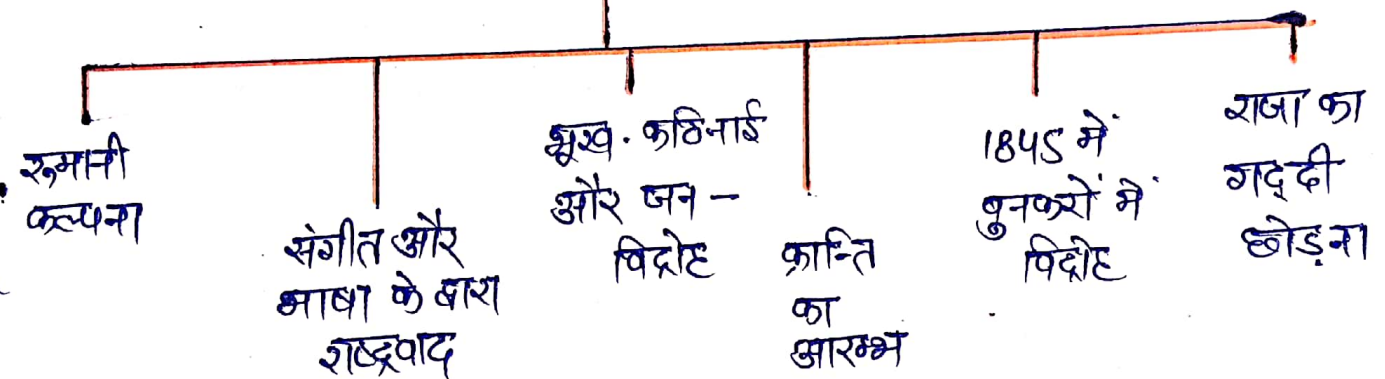 रुमानी
कल्पना
संगीत और
भाषा के द्वारा
राष्ट्रवाद
भूख. कठिनाई
और जन -
विद्रोह
क्रान्ति
का
आरम्भ
1845 में
बुनकरों में
विद्रोह
राजा का
गद्दी
छोड़ना